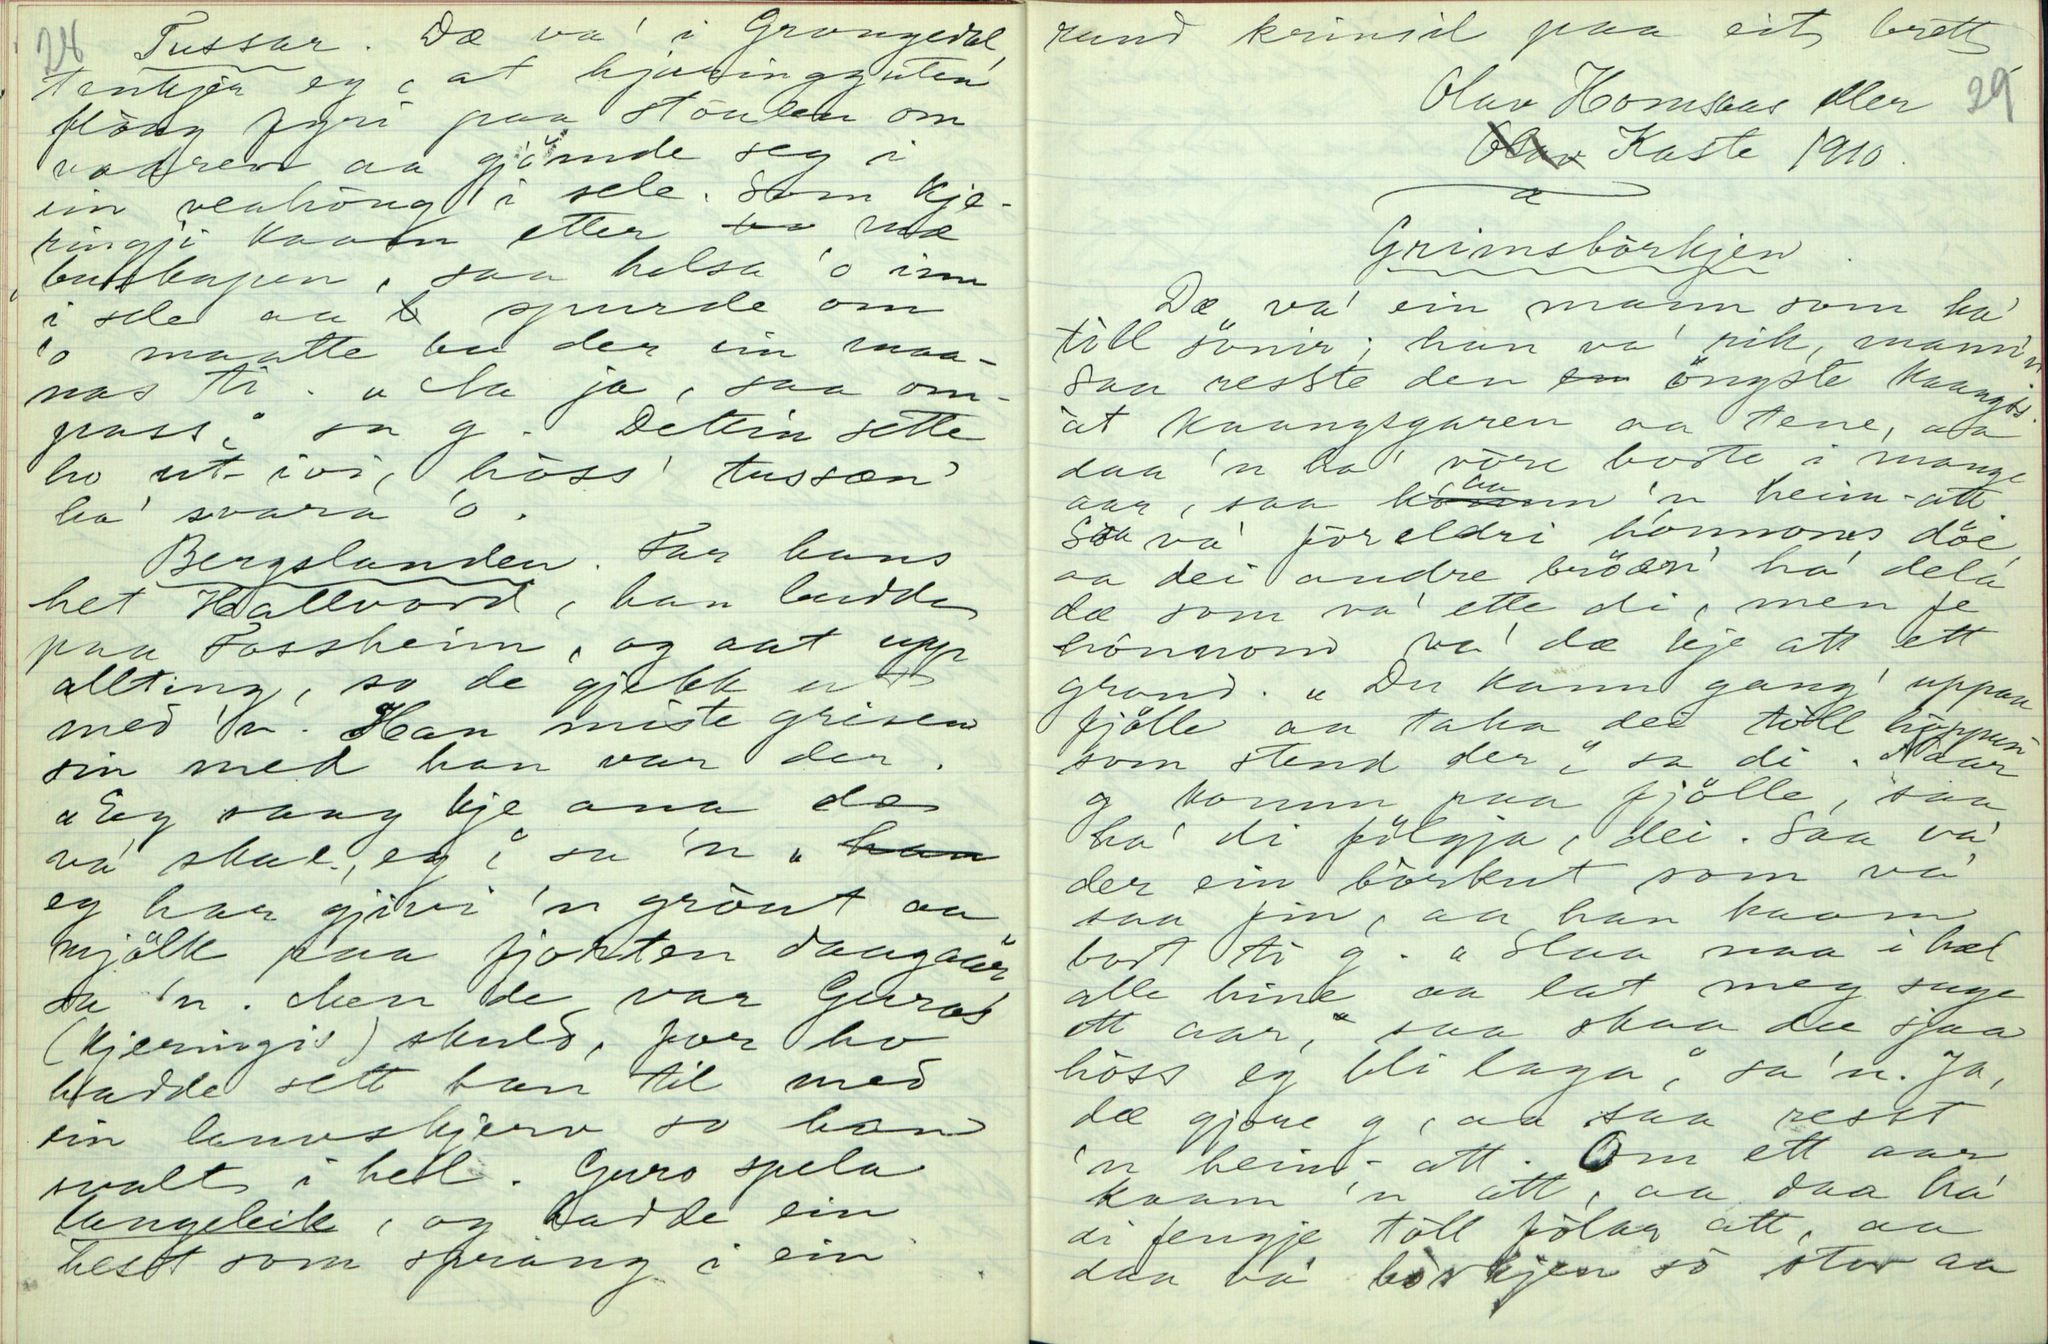 28
Tussar. Dæ va' i Grongedal,
tenkjer eg, at hjuringguten
flòug fyri paa stòulen om
vaaren aa gjömde seg i
ein veahòug i sele. Som kje-
ringji kaam etter mæ
buskapen, saa helsa 'o inn
i sele aa spurde om
'o maatte bu der ein maa-
nas ti. „Aa ja, saa om-
pass," sa g. Dettin sette
ho ut-ivi, hòss' tussæn'
ha' svara 'o.
Bergslanden. Far hans
het Hallvord, han budde
paa Fossheim, og aat upp
allting, so de gjekk ut
med 'n. Han miste grisen
sin med han var der.
„Eg saag kje ana dæ
va' skae, eg," sa 'n „han
eg har gjivi 'n grònt aa
mjölk paa fjorten daagaar"
sa 'n. Men de var Guros
(kjeringis) skuld, for ho
hadde sett han til med
ein lauvskjerv so han
svalt i hel. Guro spela
langeleik, og hadde ein
hest som sprang i ein
rund krinsil paa eit brett
Olav Homsaas eller
Olav Kaste 1910.
29
Grimsbòrkjen.
Dæ va' ein mann som ha'
tòll sönir; han va' rik, mann'n
Saa resste den öngste kaangs.
åt kaangsgaren aa tene, aa
daa 'n ha' vòre borte i mange
aar, saa kaam 'n heim-att.
Saa va' foreldri hònnoms döe,
aa dei andre bröæn' ha' dela
dæ som va' ette di, men fe
hònnom va' dæ kje att ett
grand. „Du kann gang' uppaa
fjölle aa taka dei tòll hòppun
som stend der," sa di. Naar
g komm paa fjölle, saa
ha' di fölgja, dei. Saa va'
der ein bòrkut som va'
saa fin, aa han kaam
bort ti g. „Slaa naa i hæl
alle hine aa lat meg suge
ett aar," saa skaa du sjaa
hòss eg bli laga," sa 'n. Ja,
dæ gjore g, aa saa resst
'n heim-att. Om ett aar
kaam 'n att, aa daa ha'
di fengje tòll fòlar att, aa
daa va' bòrkjen so stor aa